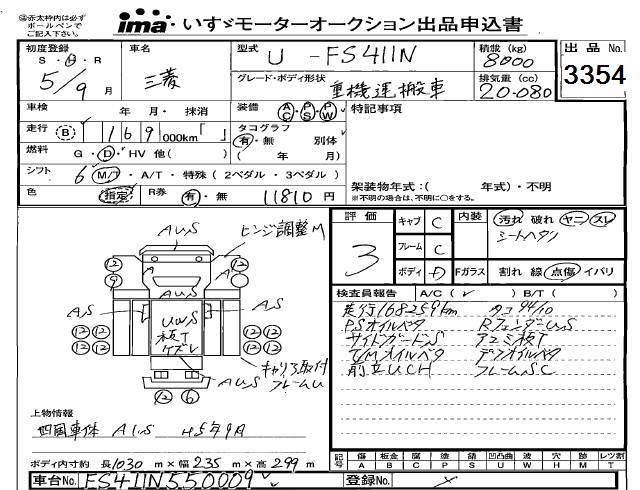 ㊟赤太枠内は必ず
ボールペンで
ご記入下さい。
ima いすゞモーターオークション出品申込書
初度登録 S・H・R 5/9 月
車名 三菱
型式 U-FS411N
積載(kg) 8000
出品No. 3354
グレード・ボディ形状 重機運搬車
排気量(cc) 20.080
車検 年 月・ 抹消
装備 AC・PS・PW
特記事項
走行 B 169 000km「 」
タコグラフ 有・無 別体
( 年 月)
燃料 G・D・HV 他( )
シフト 6 M/T・A/T・特殊(2ペダル・3ペダル)
架装物年式:( 年式)・不明
※不明の場合は、不明に〇をする。
色 指定 R券 有・無 11810 円
評価 3
キャブ C
フレーム C
ボディ D
内装 汚れ 破れ ヤニ スレ
シートヘタリ
Fガラス 割れ 線 点傷 イバリ
AUS
ヒンジ調整M
12 9 A A 12 12
AUS
AS AS
UWS
板T
ケズレ
12 12 12 12
12 12 12 12
キャリア取付
フレームU
AUS
12 6
検査員報告 A/C( ✓ ) B/T( )
走行168259km タコ94/10
PSオイルベタ RフェンダーUS
サイドガードS アユミ板T
T/Mオイルベタ デフオイルベタ
前立UCH フレームSC
上物情報
四国車体 AUS H5年9月
ボディ内寸約 長1030 m×幅235 m×高299 m
記号 傷A 板金B 腐C 塗P 錆S 凹凸曲U 波W 穴H 跡M レツ割T
車台No. FS411N550009
登録No.